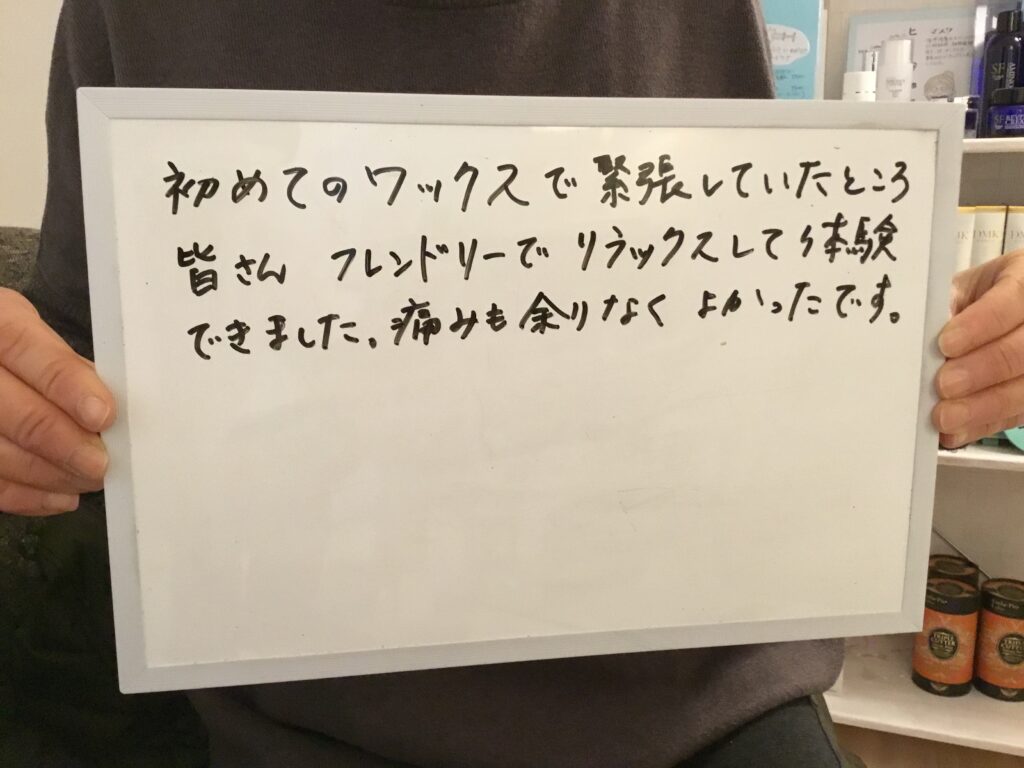 初めてのワックスで緊張していたところ
皆さん フレンドリーで リラックスして体験
できました。痛みも余りなく よかったです。
マスク
DMK